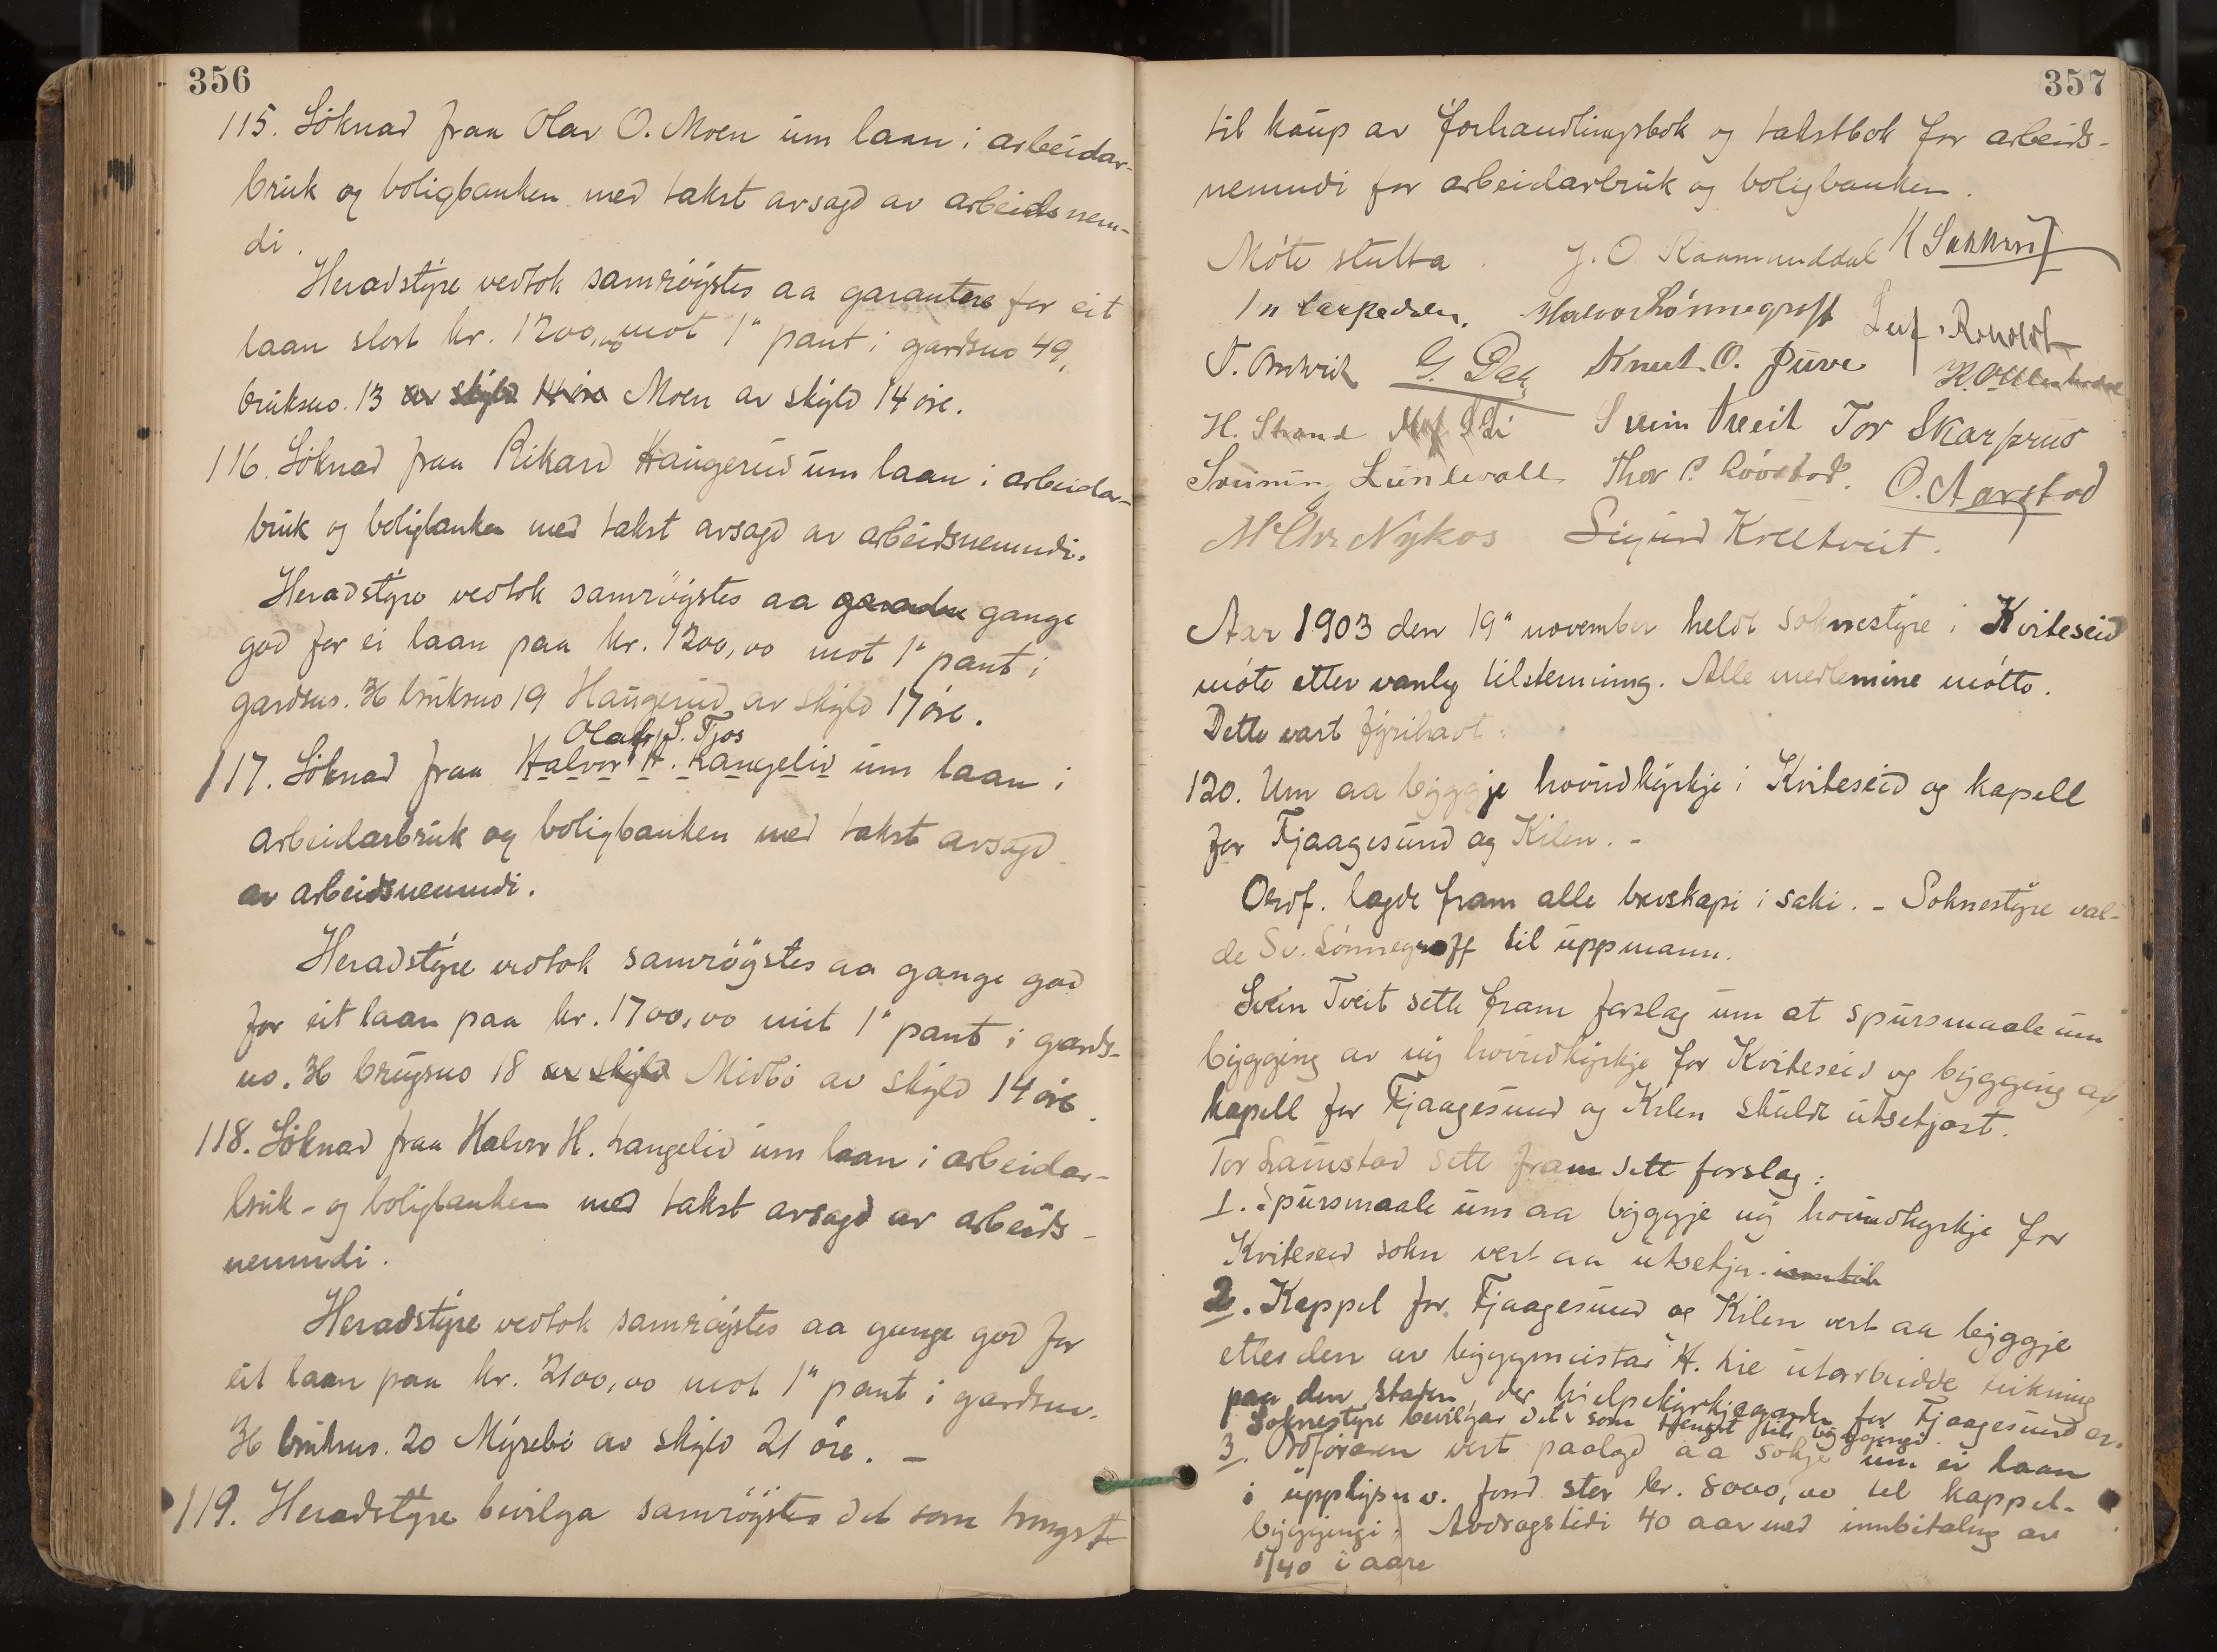 356
115. Söknad fraa Olav O. Moen um laan i arbeidar-
bruk og boligbanken med takst avsagd av arbeidsnem-
di.
Heradstyre vedtok samröystes aa garantere for eit
laan stort kr. 1200,00 mot 1" pant i gardsno 49,
bruksno. 13 av skyld 14 öre Moen av skyld 14 öre.
116. Söknad fraa Rikard Haugerud um laan i arbeidar-
bruk og boligbanken med takst avsagd av arbeidsnemndi.
Heradstyre vedtok samröystes aa gange
god for ei laan paa kr. 1200,00 mot 1" pant i
gardsno. 36 bruksno 19 Haugerud av skyld 17 öre.
Olav S. Tjos
117. Söknad fraa Halvor H. Langelid um laan i
arbeidarbruk og boligbanken med takst avsagd
av arbeidsnemndi.
Heradstyre vedtok samröystes aa gange god
for eit laan paa kr. 1700,00 mot 1" pant i gards-
no. 36 brugsno 18 av skyld Midbö av skyld 14 öre.
118. Söknad fraa Halvor H. Langelid um laan i arbeidar-
bruk- og boligbanken med takst avsagd av arbeids-
nemndi.
Heradstyre vedtok samröystes aa gange god for
eit laan paa kr. 2100,00 mot 1" pant i gardsno.
36 bruksno. 20 Myrebö av skyld 21 öre. -
119. Heradstyre bevilga samröystes det som trengst
357
til kaup av forhandlingsbok og takstbok for arbeids-
nemndi for arbeidarbruk og boligbanken.
Möte slutta. J. O. Raamunddal
Halvor Lönnegraff
G. Dal Knut O.
H. Strand Svein Tveit Tor Skarprud
Lundevall Thor O. Aarstad
Nykos Sigurd
Aar 1903 den 19" november heldt soknestyre i Kviteseid
möte etter vanleg tilstemning. Alle medlemine mötte.
Dette vart fyrihavt:
120. Um aa byggje hovudkyrkje i Kviteseid og kapell
for Fjaagesund og Kilen. -
Ordf. lagde fram alle brevskapi i saki. - Soknestyre val-
de Sv. Lönnegraff til uppmann.
Svein Tveit sette fram forslag um at spursmaale um
bygging av ny hovudkyrkje for Kviteseid og bygging av
kapell for Fjaagesund og Kilen skulde utsetjast.
Tor Laustad sette fram sett forslag:
1. Spursmaale um aa byggje ny hovudkyrkje for
Kviteseid sokn vert aa utsetja.
2. Kappel for Fjaagesund og Kilen vert aa byggje
etter den av byggmeistar H. Lie utarbeidde teikning
paa den staden, der hjelpekyrkjegarden for Fjaagesund er.
Soknestyre bevilgar det som trengst til byggingi.
3. Ordföraren vert paalagd aa sökje um ei laan
i upplysn.v. fond stor kr. 8000,00 til kappel-
byggjingi. Avdragstidi 40 aar med innbitaling av
1/40 i aare